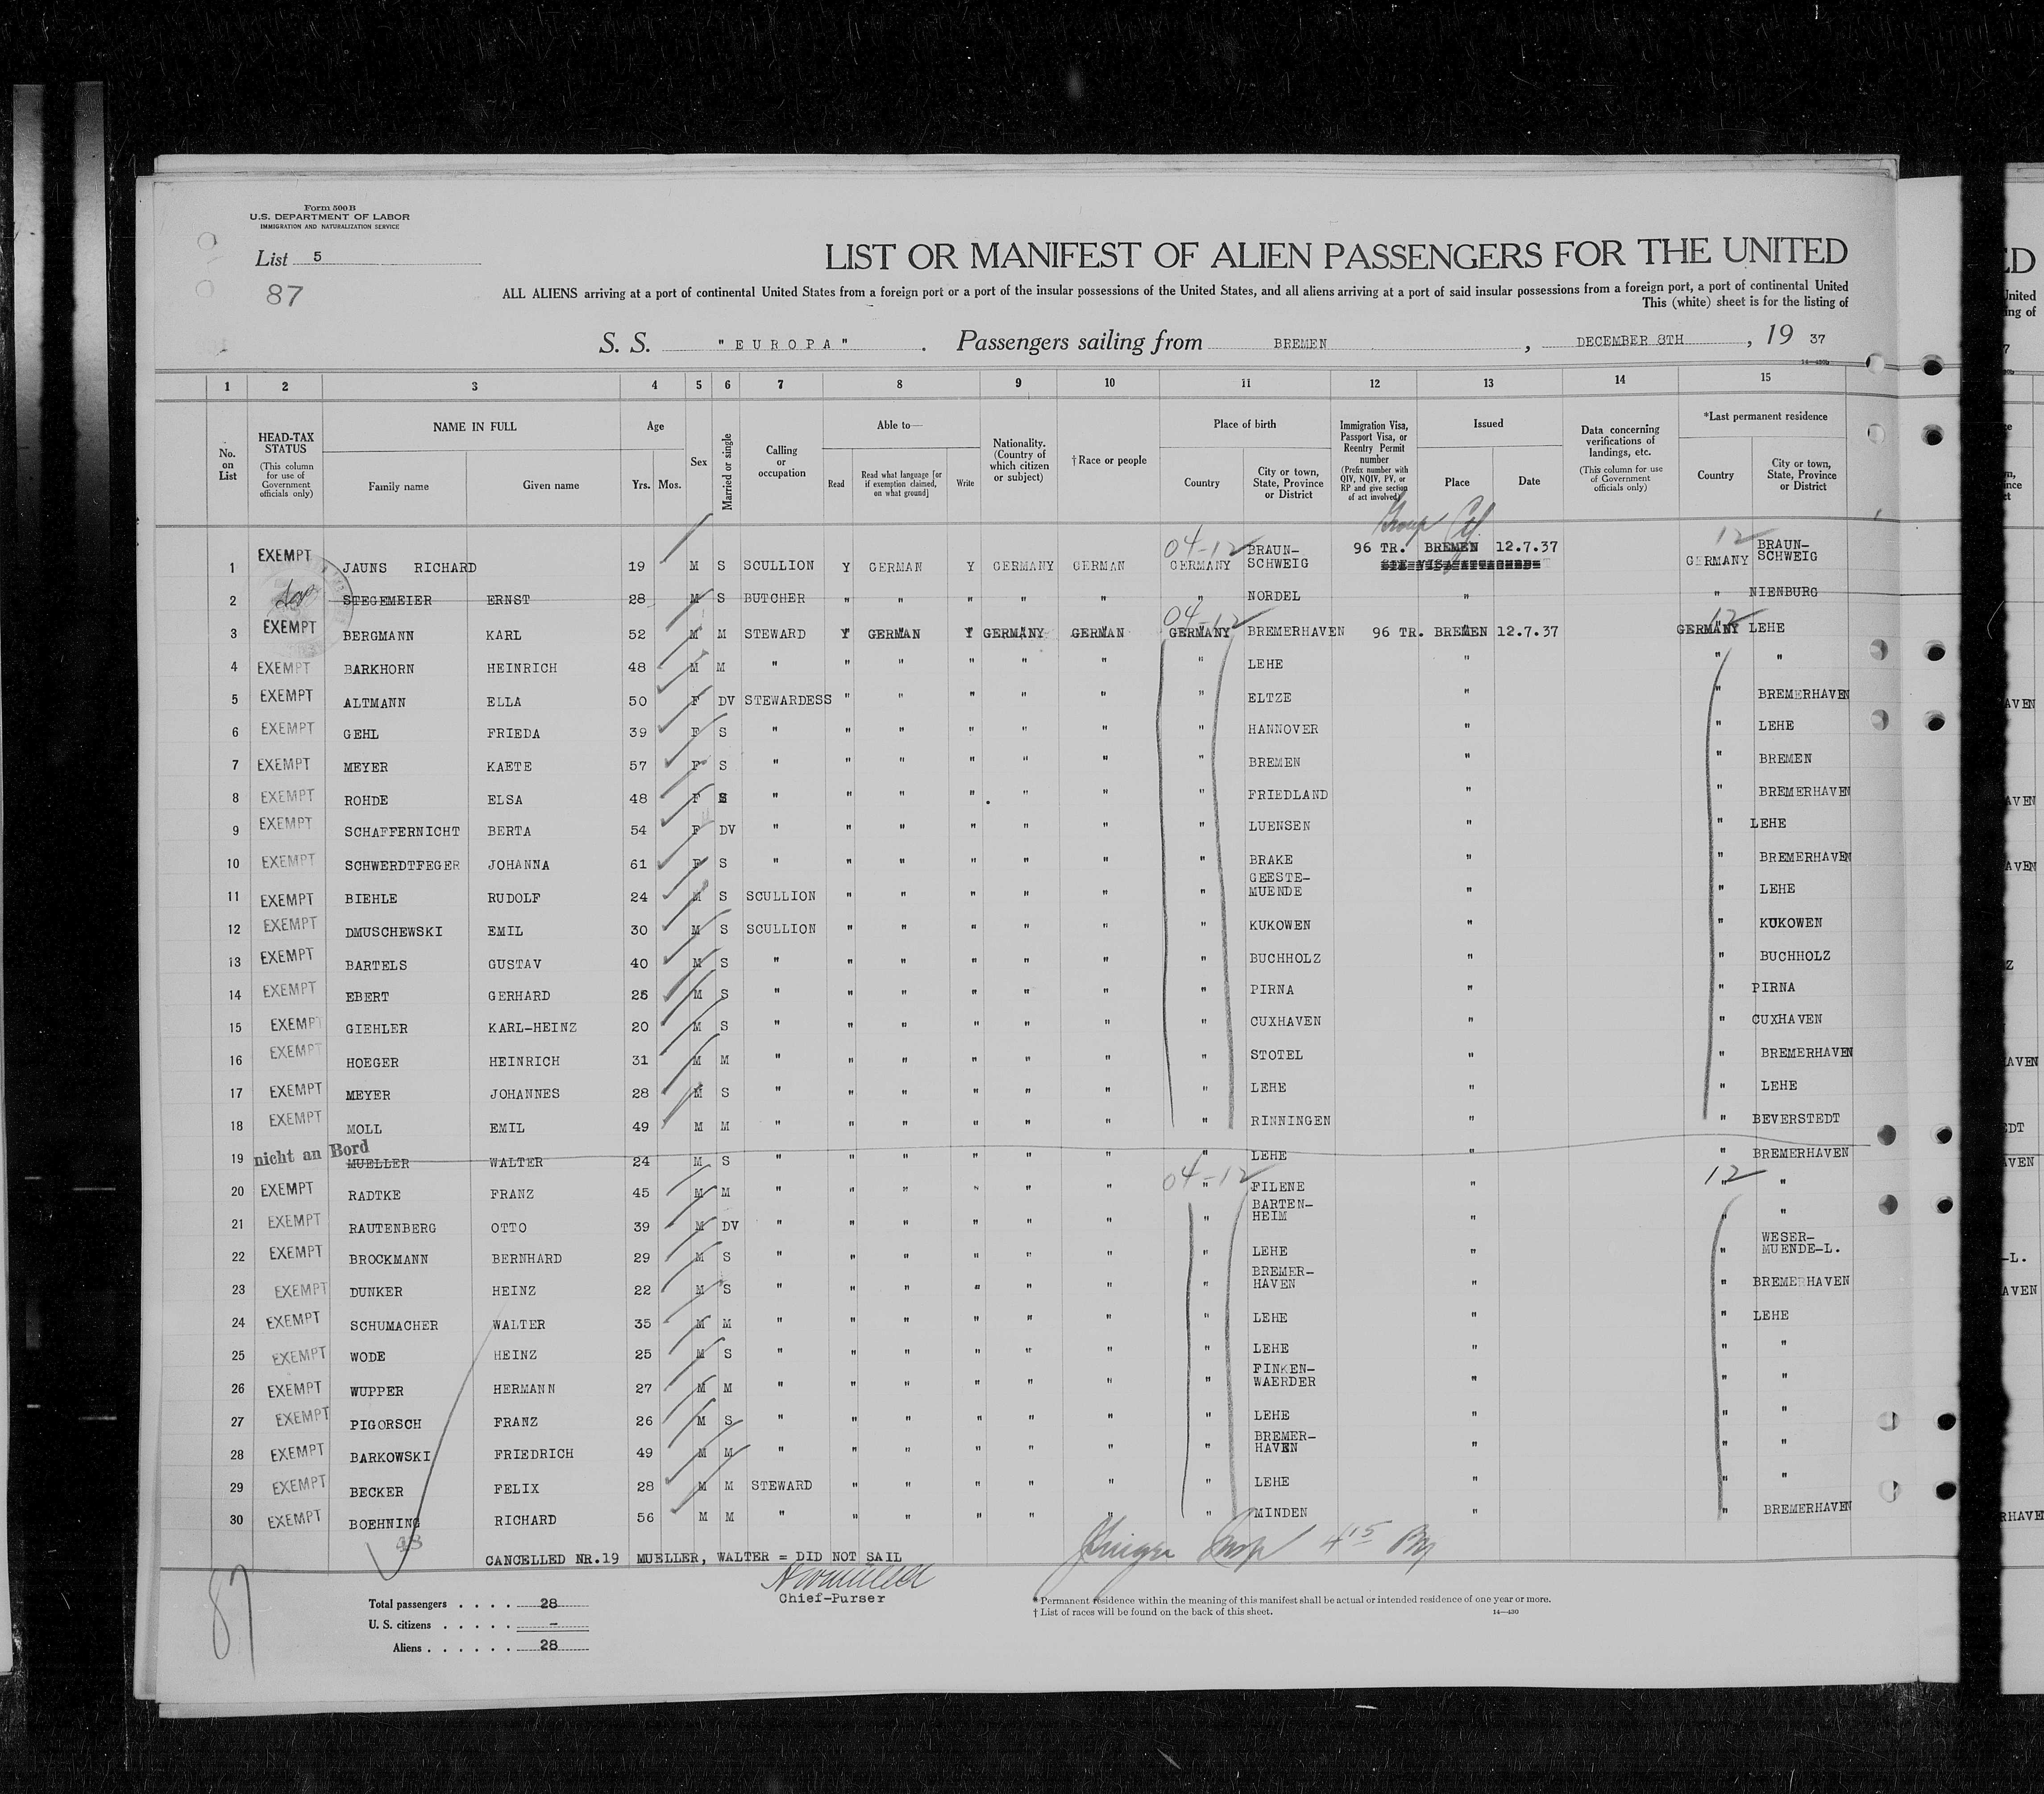 Form 500 B
U.S. DEPARTMENT OF LABOR
IMMIGRATION AND NATURALIZATION SERVICE
List 5
87
LIST OR MANIFEST OF ALIEN PASSENGERS FOR THE UNITED
ALL ALIENS arriving at a port of continental United States from a foreign port or a port of the insular possessions of the United States, and all aliens arriving at a port of said insular possessions from a foreign port, a port of continental United
This (white) sheet is for the listing of
S. S. "EUROPA". Passengers sailing from BREMEN, DECEMBER 8TH, 19 37
1 2 3 4 5 6 7 8 9 10 11 12 13 14 15
No. on List
HEAD-TAX STATUS (This column for use of Government officials only)
NAME IN FULL Family name Given name
Age Yrs. Mos.
Sex
Married or single
Calling or occupation
Able to— Read Read what language [or if exemption claimed, on what ground] Write
Nationality. (Country of which citizen or subject)
†Race or people
Place of birth Country City or town, State, Province or District
Immigration Visa, Passport Visa, or Reentry Permit number (Prefix number with QIV, NQIV, PV, or RP and give section of act involved)
Issued Place Date
Data concerning verifications of landings, etc. (This column for use of Government officials only)
*Last permanent residence Country City or town, State, Province or District
Group
04-12 12
1 EXEMPT JAUNS RICHARD 19 M S SCULLION Y GERMAN Y GERMANY GERMAN GERMANY BRAUN-SCHWEIG 96 TR. BREMEN 12.7.37 GERMANY BRAUN-SCHWEIG
2 STEGEMEIER ERNST 28 M S BUTCHER " " " " " " NORDEL " " NIENBURG
04-12 12
3 EXEMPT BERGMANN KARL 52 M M STEWARD Y GERMAN Y GERMANY GERMAN GERMANY BREMERHAVEN 96 TR. BREMEN 12.7.37 GERMANY LEHE
4 EXEMPT BARKHORN HEINRICH 48 M M " " " " " " " LEHE " " "
5 EXEMPT ALTMANN ELLA 50 F DV STEWARDESS " " " " " " ELTZE " " BREMERHAVEN
6 EXEMPT GEHL FRIEDA 39 F S " " " " " " " HANNOVER " " LEHE
7 EXEMPT MEYER KAETE 57 F S " " " " " " " BREMEN " " BREMEN
8 EXEMPT ROHDE ELSA 48 F S " " " " " " " FRIEDLAND " " BREMERHAVEN
9 EXEMPT SCHAFFERNICHT BERTA 54 F DV " " " " " " " LUENSEN " " LEHE
10 EXEMPT SCHWERDTFEGER JOHANNA 61 F S " " " " " " " BRAKE " " BREMERHAVEN
11 EXEMPT BIEHLE RUDOLF 24 M S SCULLION " " " " " " GEESTE-MUENDE " " LEHE
12 EXEMPT DMUSCHEWSKI EMIL 30 M S SCULLION " " " " " " KUKOWEN " " KUKOWEN
13 EXEMPT BARTELS GUSTAV 40 M S " " " " " " " BUCHHOLZ " " BUCHHOLZ
14 EXEMPT EBERT GERHARD 26 M S " " " " " " " PIRNA " " PIRNA
15 EXEMPT GIEHLER KARL-HEINZ 20 M S " " " " " " " CUXHAVEN " " CUXHAVEN
16 EXEMPT HOEGER HEINRICH 31 M M " " " " " " " STOTEL " " BREMERHAVEN
17 EXEMPT MEYER JOHANNES 28 M S " " " " " " " LEHE " " LEHE
18 EXEMPT MOLL EMIL 49 M M " " " " " " " RINNINGEN " " BEVERSTEDT
19 nicht an Bord MUELLER WALTER 24 M S " " " " " " " LEHE " " BREMERHAVEN
04-12 12
20 EXEMPT RADTKE FRANZ 45 M M " " " " " " " FILENE " " "
21 EXEMPT RAUTENBERG OTTO 39 M DV " " " " " " " BARTEN-HEIM " " "
22 EXEMPT BROCKMANN BERNHARD 29 M S " " " " " " " LEHE " " WESER-MUENDE-L.
23 EXEMPT DUNKER HEINZ 22 M S " " " " " " " BREMER-HAVEN " " BREMERHAVEN
24 EXEMPT SCHUMACHER WALTER 35 M M " " " " " " " LEHE " " LEHE
25 EXEMPT WODE HEINZ 25 M S " " " " " " " LEHE " " "
26 EXEMPT WUPPER HERMANN 27 M M " " " " " " " FINKEN-WAERDER " " "
27 EXEMPT PIGORSCH FRANZ 26 M S " " " " " " " LEHE " " "
28 EXEMPT BARKOWSKI FRIEDRICH 49 M M " " " " " " " BREMER-HAVEN " " "
29 EXEMPT BECKER FELIX 28 M M STEWARD " " " " " " LEHE " " "
30 EXEMPT BOEHNING RICHARD 56 M M " " " " " " " MINDEN " " BREMERHAVEN
CANCELLED NR.19 MUELLER, WALTER = DID NOT SAIL
Chief-Purser
87
Total passengers . . . . 28
U. S. citizens . . . . . –
Aliens . . . . . . 28
* Permanent residence within the meaning of this manifest shall be actual or intended residence of one year or more.
† List of races will be found on the back of this sheet. 14—430